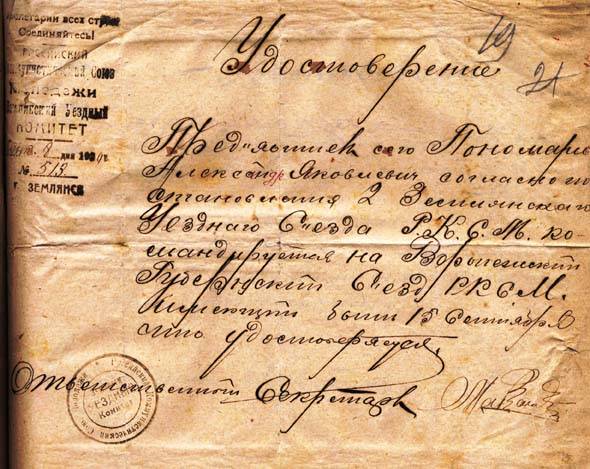 Пролетарии всех стран
Соединяйтесь!
Российский
Коммунистический Союз
Молодежи
Уездный
КОМИТЕТ
8 дня 192
№ 513
г. ЗЕМЛЯНСК
19
21
Удостоверение
Пред"явитель сего Пономарев
Александр Яковлевич согласно по
становления 2 Землянского
Уездного С"езда Р.К.С.М. ко-
мандируется на Воронежский
Губернский С"езд РКСМ.
Имеющий быть 15 Сентября
что удостоверяется.
Ответственный Секретарь